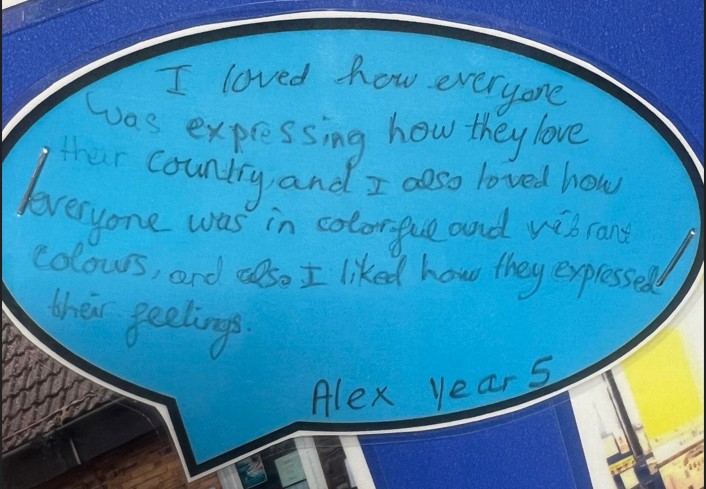 I loved how everyone
was expressing how they love
their country, and I also loved how
everyone was in colorful and vibrant
colours, and also I liked how they expressed
their feelings.
Alex Year 5